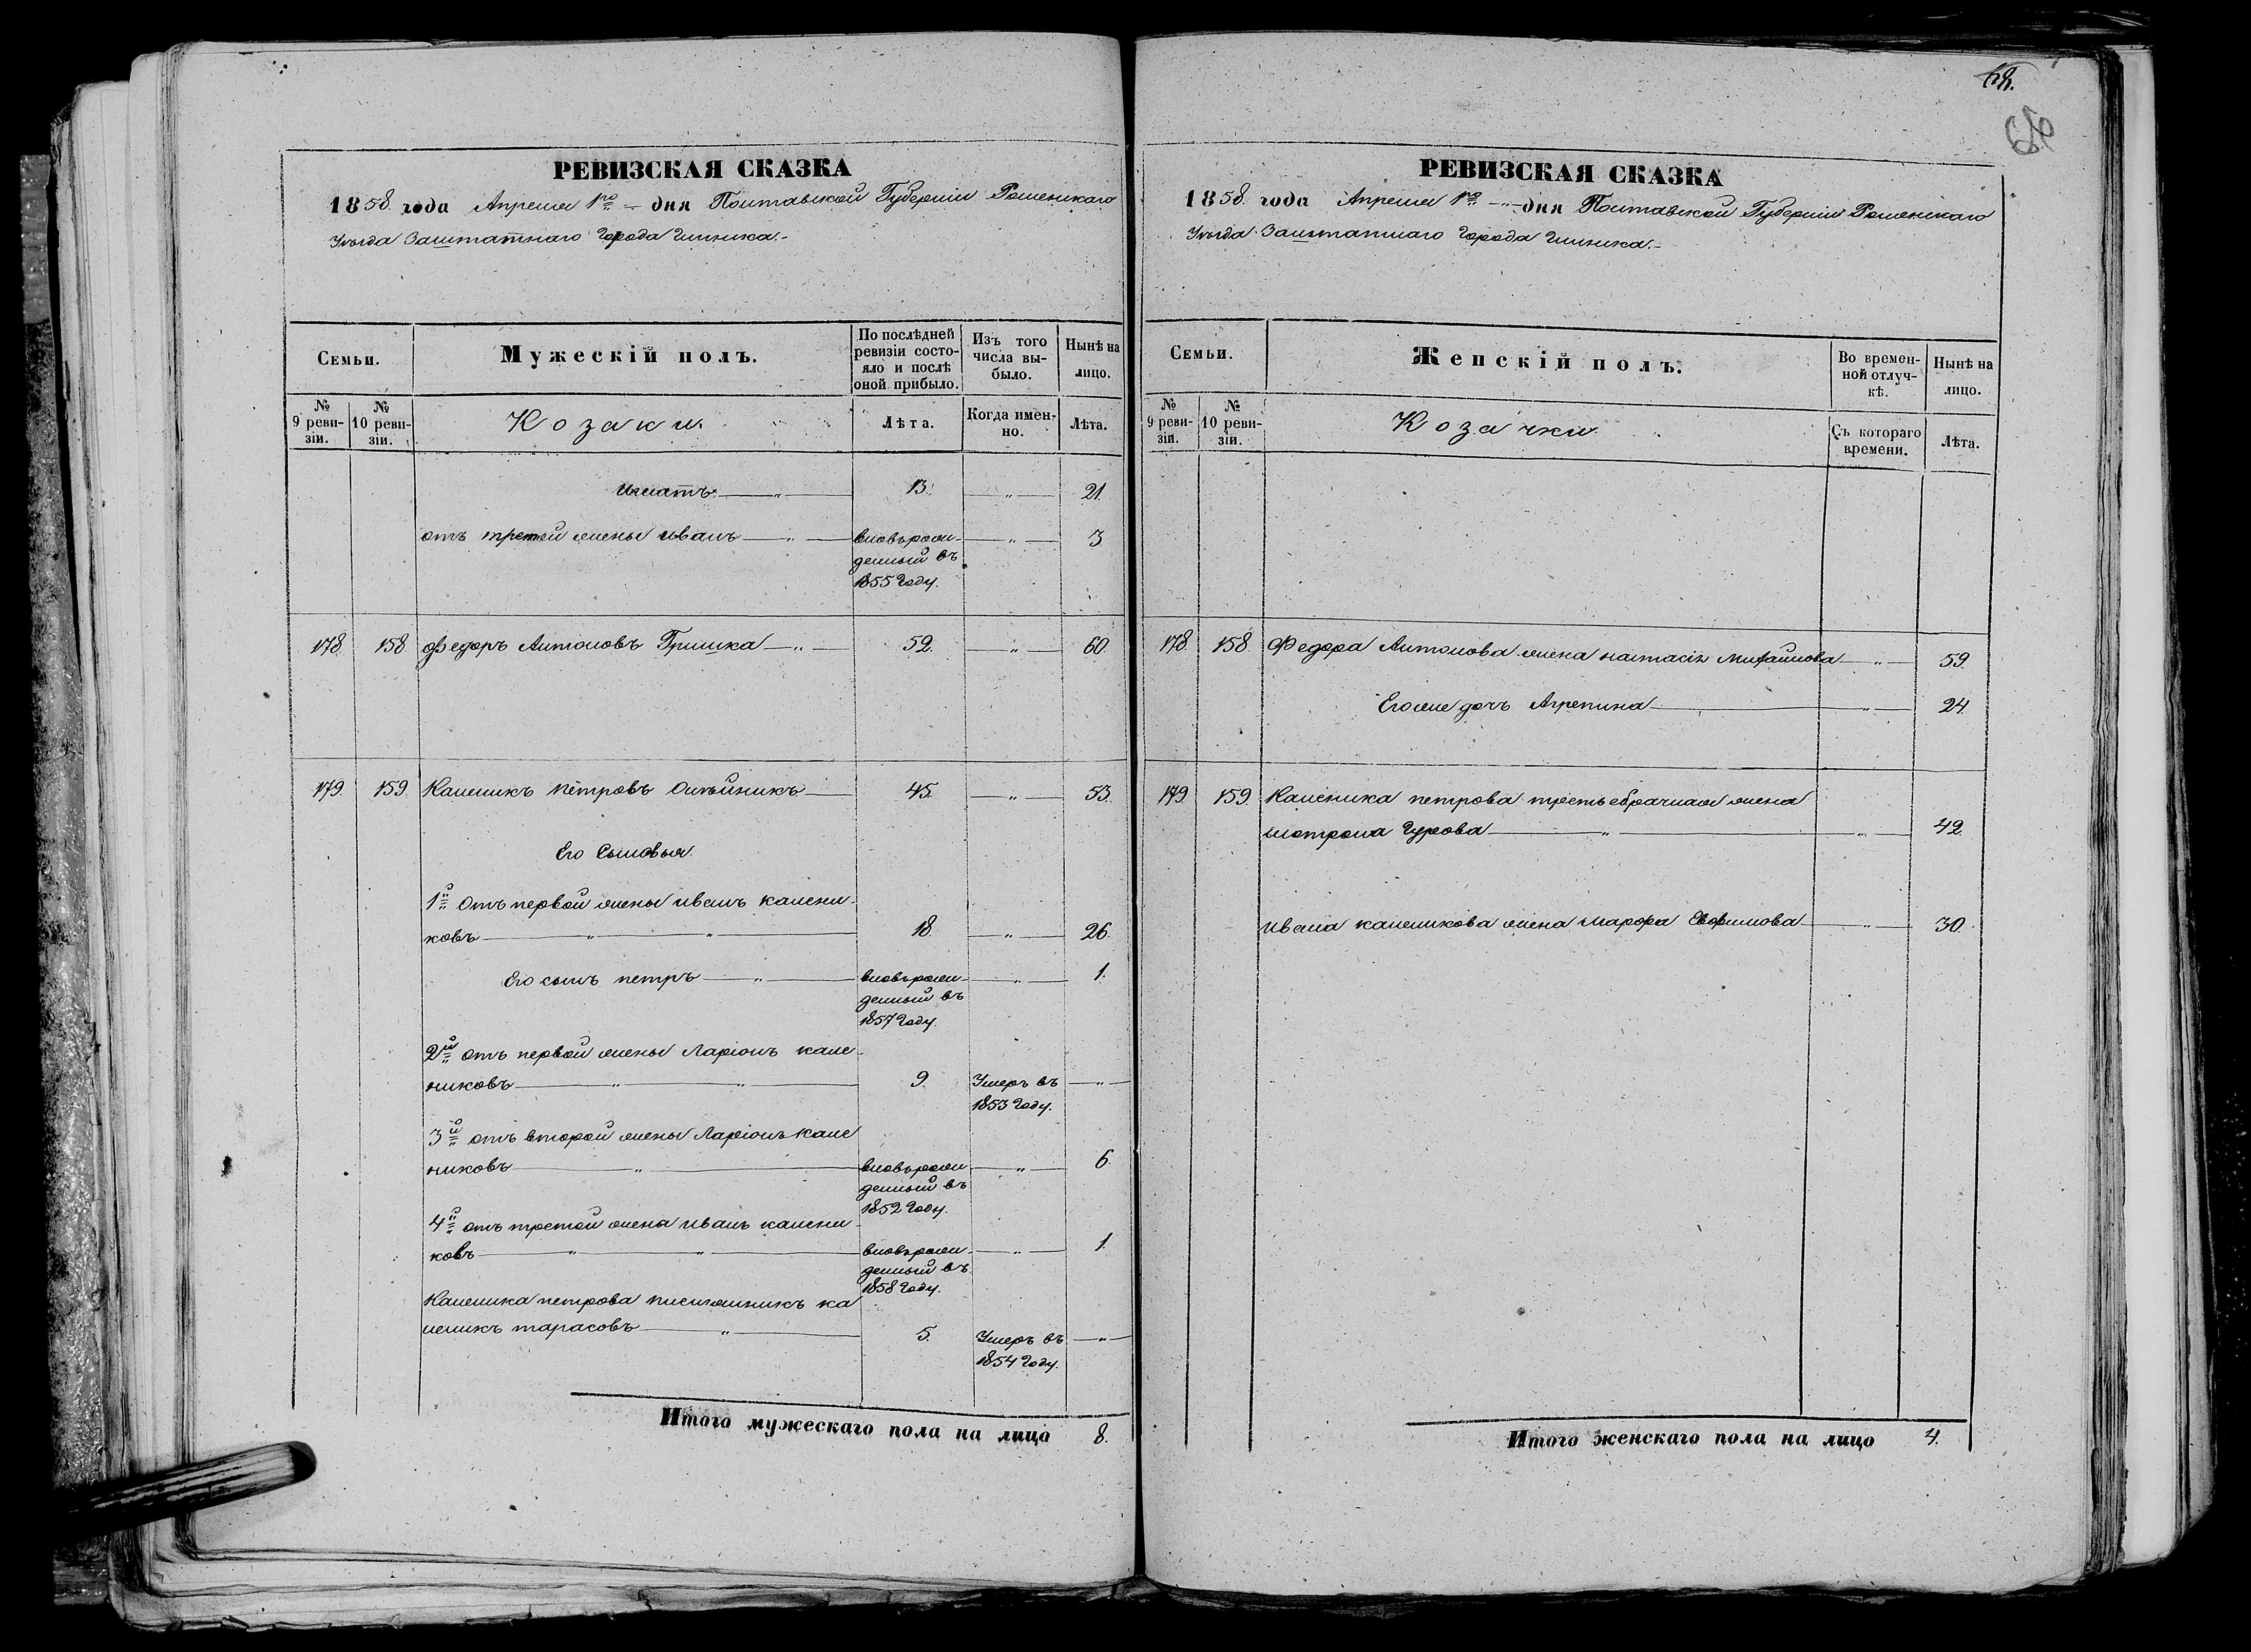 68.
66
РЕВИЗСКАЯ СКАЗКА
1858 года Апреля 1го дня Полтавской Губернiи Роменскаго
Уѣзда Заштатнаго Города Глинска.
Семьи.
Мужескiй полъ.
По послѣдней ревизiи состояло и послѣ оной прибыло.
Изъ того числа выбыло.
Нынѣ на лицо.
№ 9 ревизiи.
№ 10 ревизiи.
Козаки.
Лѣта.
Когда именно.
Лѣта.
Игнатъ " 13. " 21.
отъ третей жены иванъ " вновърож- " 3
денный въ
1855 Году.
178. 158. Федоръ Антоновъ Гришка " 52. " 60.
179. 159. Каленикъ петровъ Олѣйникъ 45. " 53.
Его Сыновья.
1й Отъ первой жены иванъ калени-
ковъ " " 18. " 26.
Его сынъ петръ " вновърож- " 1.
денный въ
1857 Году.
2й отъ первой жены Ларiонъ кале-
никовъ " " 9. Умеръ въ "
1853 Году.
3й отъ второй жены Ларiонъ кале
никовъ " вновърож " 6.
денный въ
1852 Году.
4й отъ третой жены иванъ калени-
ковъ " " вновърож- " 1.
денный въ
1858 Году.
Каленика петрова племянникъ ка
леникъ тарасовъ " 5. Умеръ въ "
1854 Году.
Итого мужескаго пола на лицо 8.
РЕВИЗСКАЯ СКАЗКА
1858 года Апреля 1го " дня Полтавской Губернiи Роменскаго
Уѣзда Заштатнаго Города Глинска.
Семьи.
Женскiй полъ.
Во временной отлучкѣ.
Нынѣ на лицо.
№ 9 ревизiи.
№ 10 ревизiи.
Козачки
Съ котораго времени.
Лѣта.
178. 158. Федора Антонова жена настасiя Михайлова " 59.
Егоже дочъ Агрепина " 24.
179. 159. Каленика петрова третьебрачная жена
мотрона Гурова " " 42.
ивана каленикова жена марфа Евфимова " 30.
Итого женскаго пола на лицо 4.